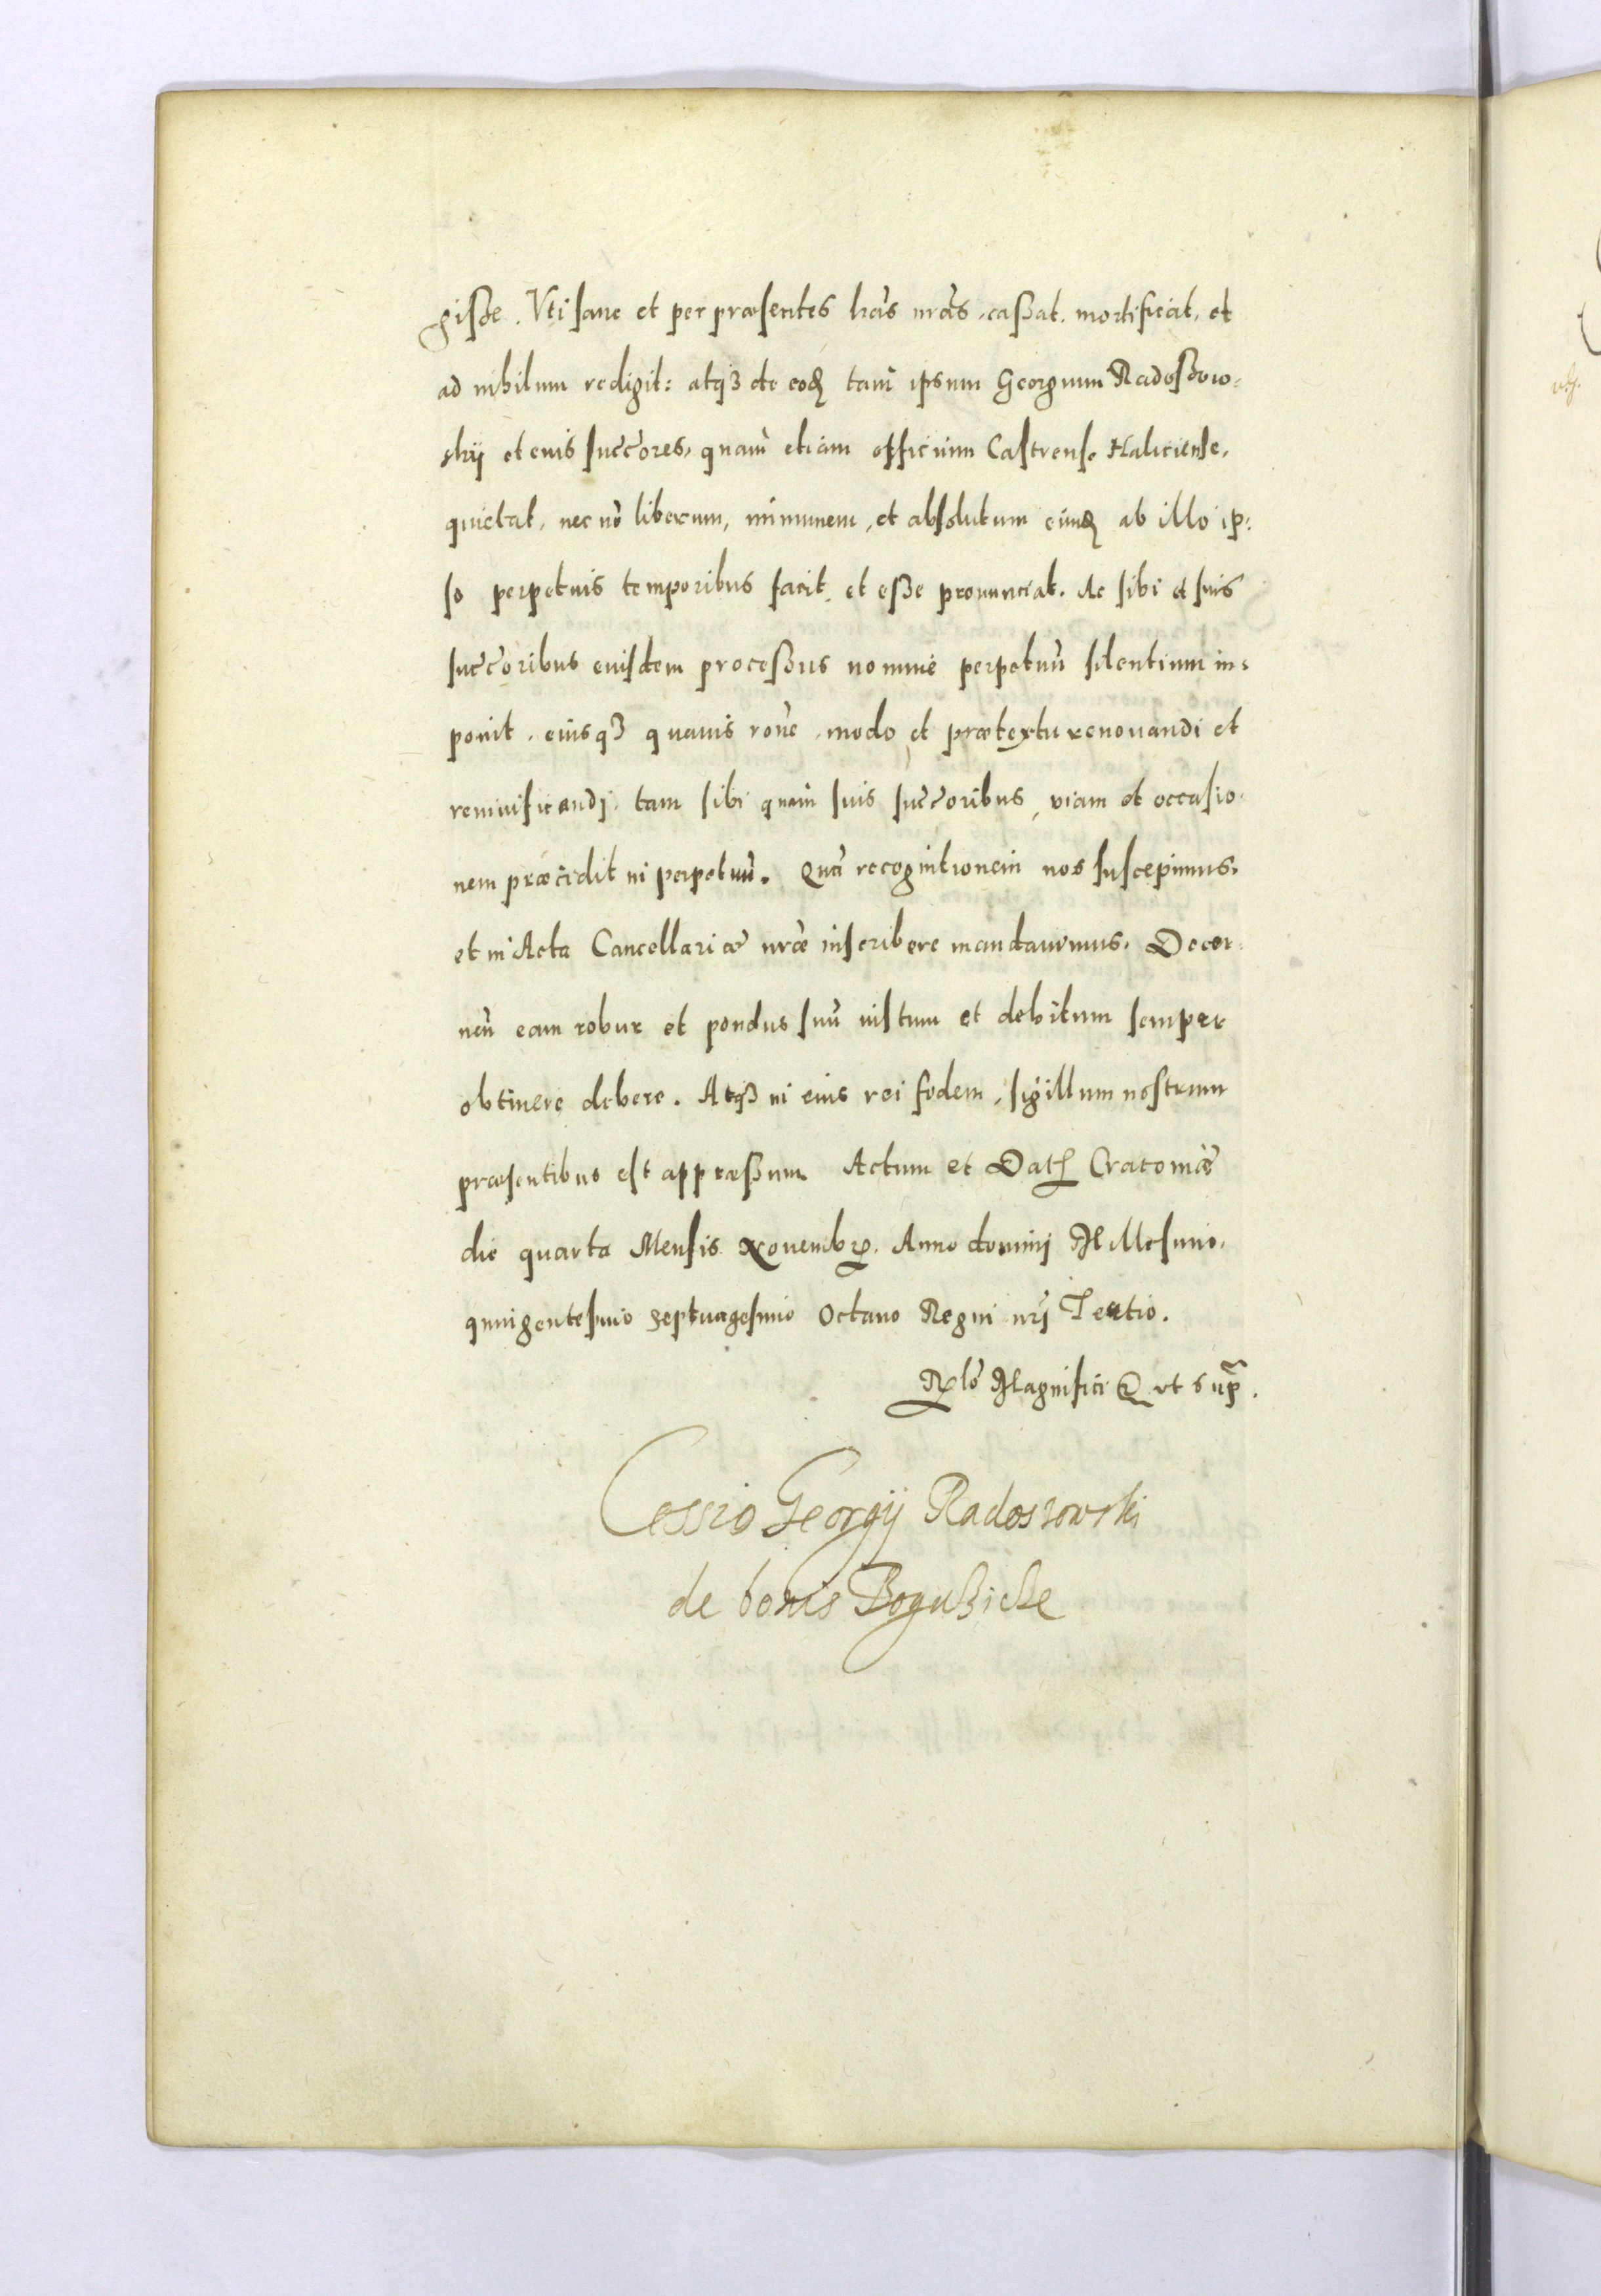 gisse. Vti sane et per præsentes lrãs nrãs, cassat, mortificat, et
ad nihilum redigit: atqꝫ de eod tam ipsum Georgium Radoszow-
skÿ et eius succ̃ores, quam etiam officium Castrense Haliciense,
quietat, nec nõ liberum, immunem, et absolutum eund ab illo ip-
so perpetuis temporibus facit, et esse pronunciat. Ac sibi et suis
succ̃oribus eiusdem processus nomine perpetuũ silentium im-
ponit, eiusqꝫ quauis rõne, modo et prætextu renouandi et
reuiuificandj, tam sibi quam suis succ̃oribus, viam et occasio-
nem præcidit in perpetuũ. Quã recognitionem nos suscepimus,
et in Acta Cancellariæ nr̃æ inscribere mandauimus. Decer-
nen̄ eam robur et pondus suũ iustum et debitum semper
obtinere debere. Atqꝫ in eius rei fidem, sigillum nostrum
præsentibus est appressum. Actum et Dat Cracouiæ
die quarta Mensis Nouembr. Anno dominj Millesimo,
quingentesimo septuagesimo Octauo Regni nrj̃ Tertio.
Rel̃o Magnifici & vt supr̃.
Cessio Georgÿ Radoszowski
de bonis Bogusicze